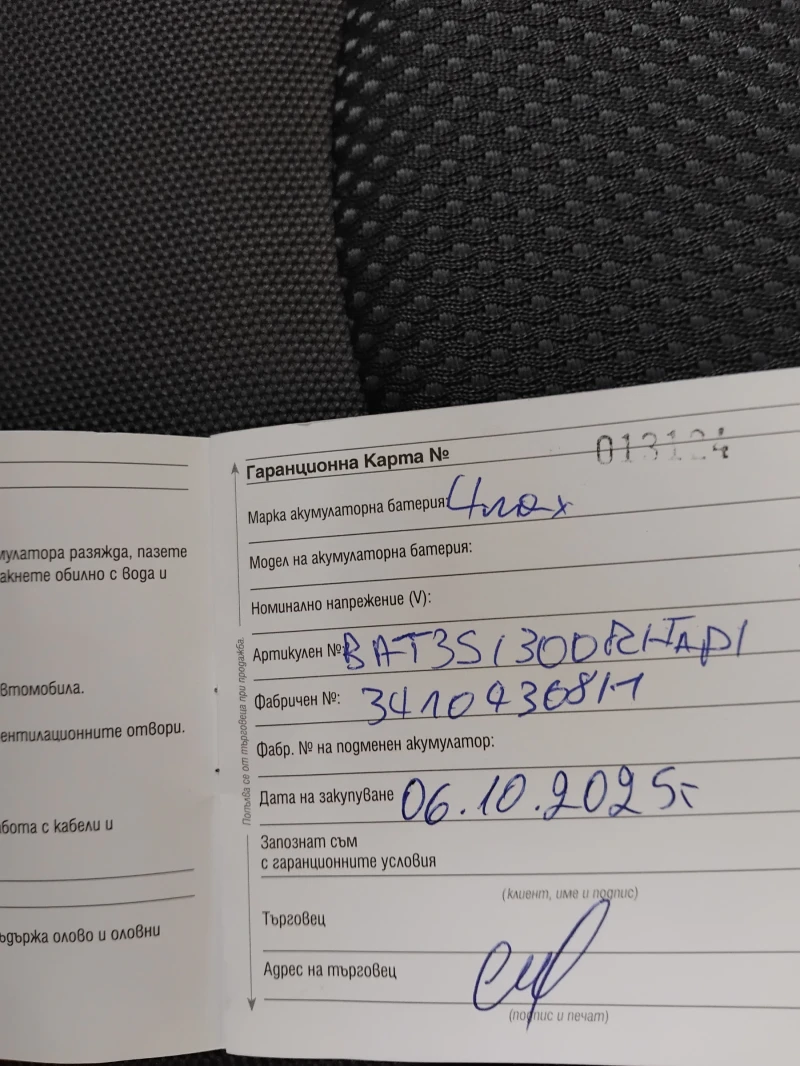 мулатора разяжда, пазете
акнете обилно с вода и
втомобила.
ентилационните отвори.
бота с кабели и
ъдържа олово и оловни
Попълва се от търговеца при продажба.
Гаранционна Карта № 013124
Марка акумулаторна батерия:
Модел на акумулаторна батерия:
Номинално напрежение (V):
Артикулен №:
Фабричен №:
Фабр. № на подменен акумулатор:
Дата на закупуване 06.10.2025г
Запознат съм
с гаранционните условия
(клиент, име и подпис)
Търговец
Адрес на търговец
(подпис и печат)